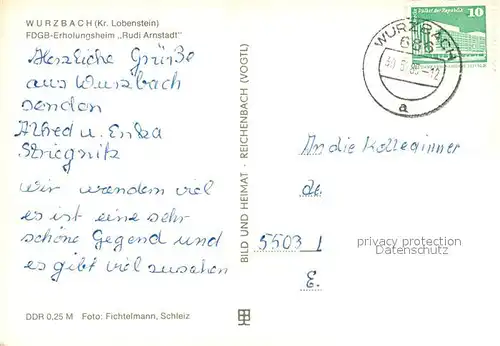 WURZBACH (Kr. Lobenstein)
FDGB-Erholungsheim „Rudi Arnstadt"
Herzliche Grüße
aus Wurzbach
senden
Alfred u. Erika
Striegnitz
Wir wandern viel
es ist eine sehr
schöne Gegend und
es gibt viel zusehen
DDR 0.25 M Foto: Fichtelmann, Schleiz
BILD UND HEIMAT · REICHENBACH (VOGTL)
WURZBACH
686
a
10
An die Kolleginner
de
5503
E.
privacy protection
Datenschutz